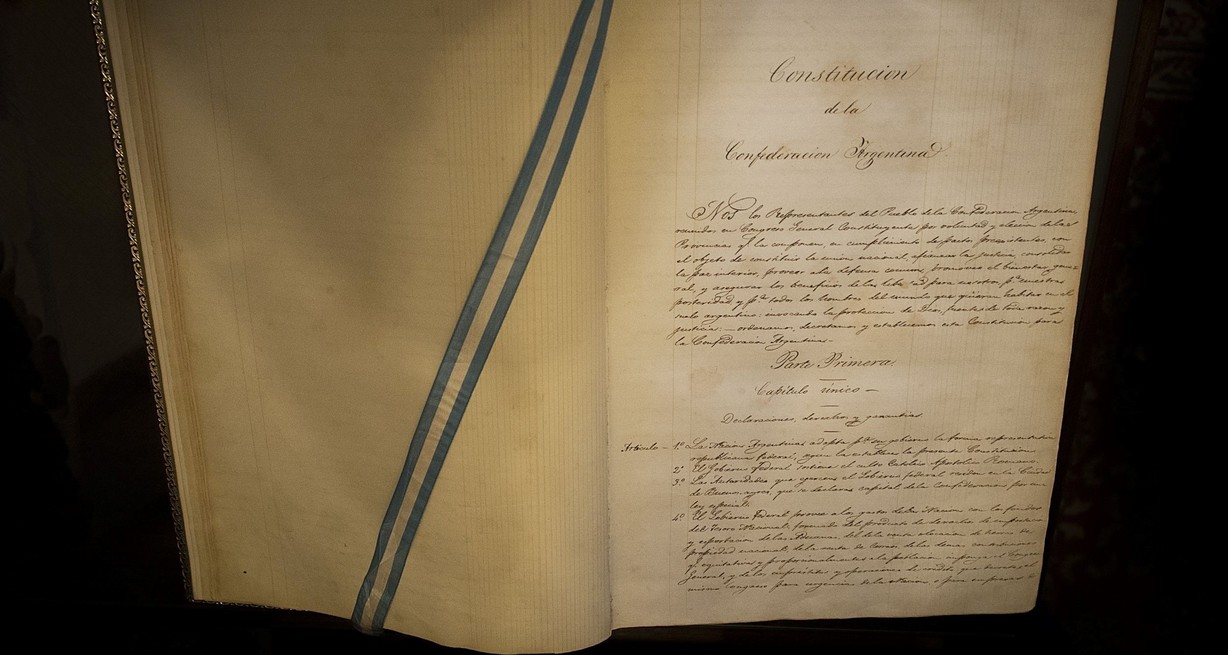 Constitucion
de la
Confederacion Argentina
Nos los Representantes del Pueblo de la Confederacion Argentina
reunidos en Congreso General Constituyente por voluntad y elecion de las
Provincias q.e la componen, en cumplimiento de pactos preexistentes, con
el objeto de constituir la union nacional, afianzar la justicia, consolidar
la paz interior, proveer a la defensa comun, promover el bienestar gene-
ral, y asegurar los beneficios de la libertad para nosotros p.a nuestra
posteridad y p.a todos los hombres del mundo que quieran habitar en el
suelo argentino: invocando la proteccion de Dios, fuente de toda razon y
justicia: — ordenamos, decretamos y establecemos esta Constitucion para
la Confederacion Argentina.—
Parte Primera
Capitulo único —
Declaraciones, derechos y garantias
Artículo — 1.º La Nacion Argentina adopta p.a su gobierno la forma representativa
republicana federal, segun la establece la presente Constitucion.
2.º El Gobierno federal sostiene el culto Catolico Apostolico Romano.
3.º Las Autoridades que ejercen el Gobierno federal residen en la Ciudad
de Buenos ayres, que se declara capital de la Confederacion por una
ley especial.
4.º El Gobierno Federal provee a los gastos de la Nacion con los fondos
del Tesoro Nacional, formado del producto de derechos de importacion
y esportacion de las Aduanas, del de la venta de tierras de
propiedad nacional, de la renta de Correos, de las demas contribuciones
q.e equitativa y proporcionalmente a la poblacion imponga el Congreso
General, y de los emprestitos y operaciones de credito que decrete el
mismo Congreso para urgencias de la Nacion o para empresas